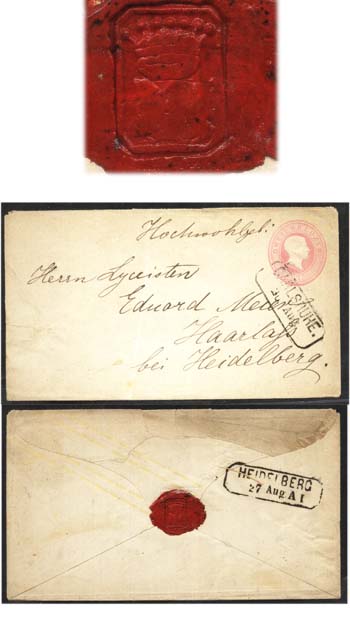 Hochwohlgeb:
Herrn Lyceisten
Eduard Meier
Haarlass
bei Heidelberg.
HEIDELBERG
27 Aug A I